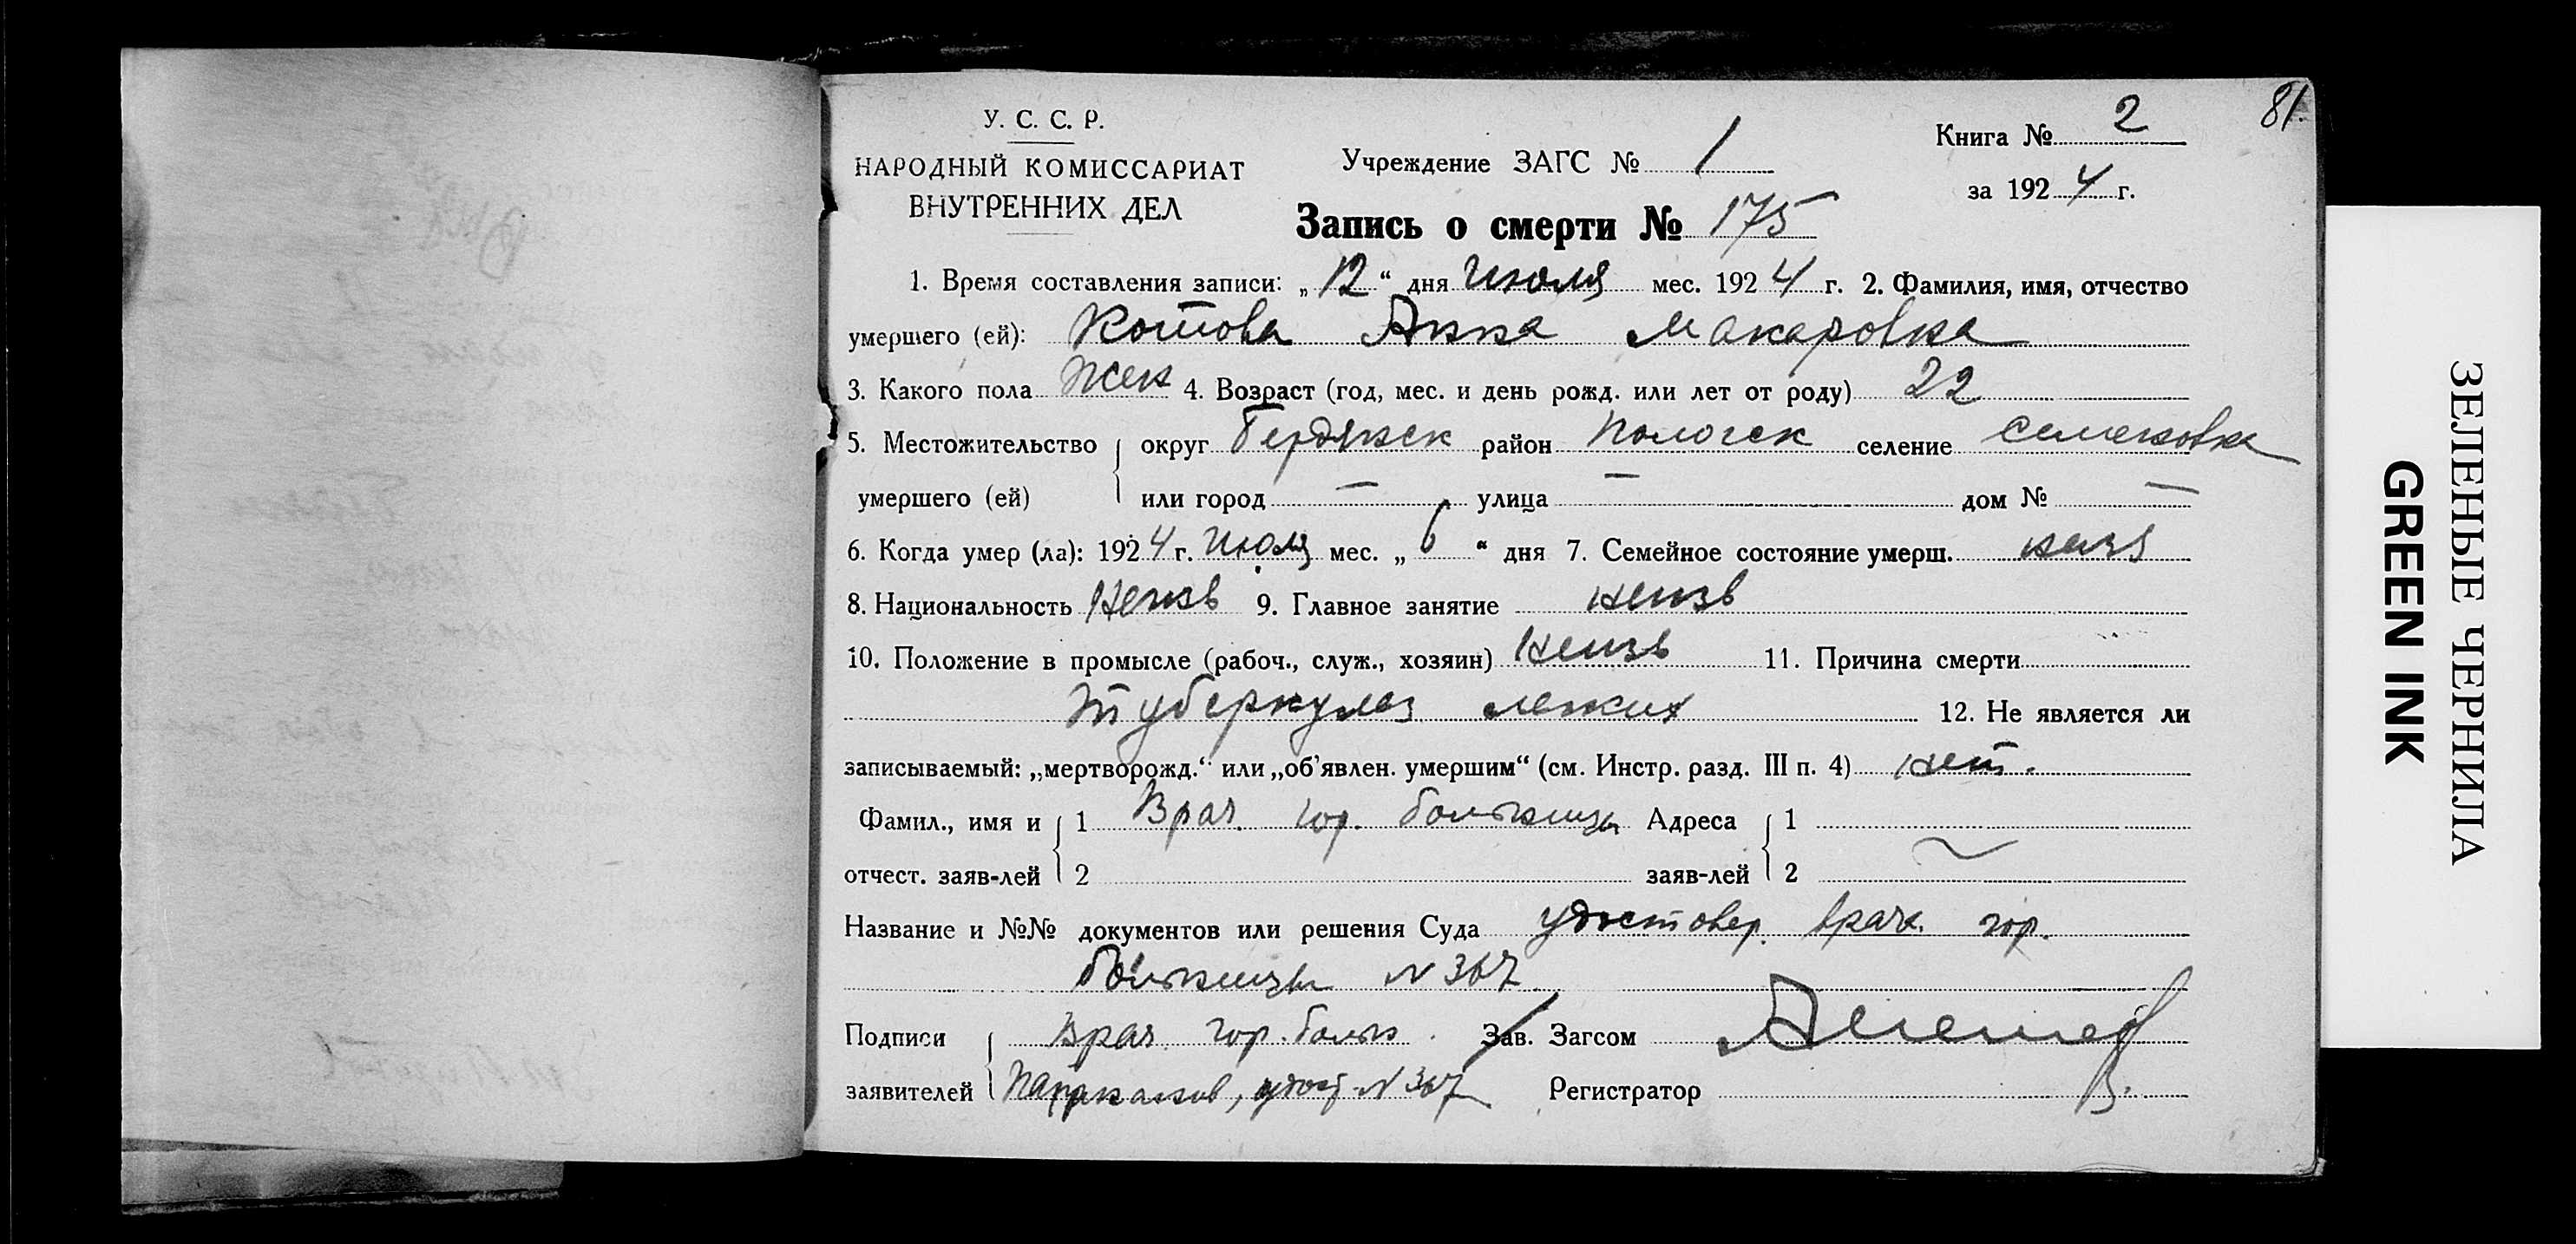 81.
У. С. С. Р.
НАРОДНЫЙ КОМИССАРИАТ
ВНУТРЕННИХ ДЕЛ
Учреждение ЗАГС № 1
Книга № 2
за 1924 г.
Запись о смерти № 175
1. Время составления записи: „12“ дня Июля мес. 1924 г. 2. Фамилия, имя, отчество
умершего (ей): Котова Анна Макаровна
3. Какого пола Жен 4. Возраст (год, мес. и день рожд. или лет от роду) 22
5. Местожительство округ Бердянск район Пологск селение Семеновка
умершего (ей) или город — улица — дом № —
6. Когда умер (ла): 1924 г. Июля мес. „6“ дня 7. Семейное состояние умерш.
8. Национальность Неизв 9. Главное занятие неизв
10. Положение в промысле (рабоч., служ., хозяин) Неизв 11. Причина смерти
Туберкулез легких 12. Не является ли
записываемый: „мертворожд.“ или „об’явлен. умершим“ (см. Инстр. разд. III п. 4) нет.
Фамил., имя и 1 Врач гор. больницы Адреса 1
отчест. заяв-лей 2 заяв-лей 2
Название и №№ документов или решения Суда удостовер. врача гор.
больницы N 367
Подписи Врач гор. больн. Зав. Загсом
заявителей удост. N 367 Регистратор
ЗЕЛЕНЫЕ ЧЕРНИЛА
GREEN INK